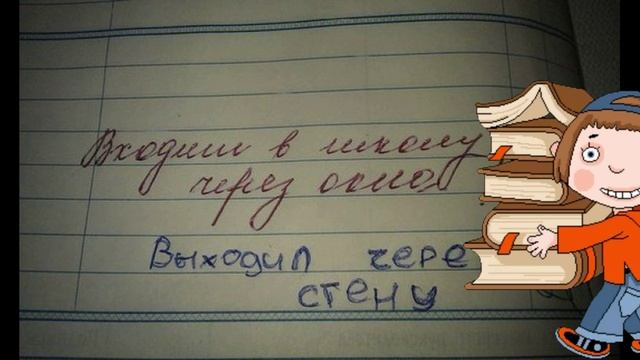 Входил в школу
через окно.
Выходил чере
стену